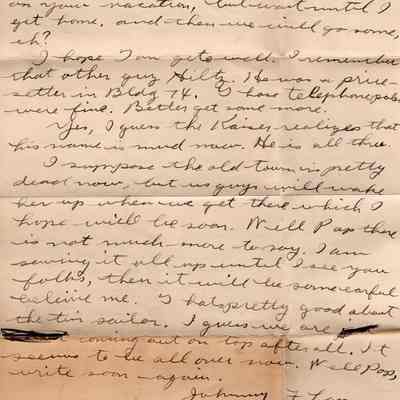 on your vacation, but wait until I
get home, and then we will go some,
eh?
I hope Tom gets well. I remember
that other guy Hilty. He was a price-
setter in Bldg 74. Those telephone poles
were fine. Better get some more.
Yes, I guess the Kaiser realizes that
his name is mud now. He is all thru.
I suppose the old town is pretty
dead now, but us guys will wake
her up when we get there which I
hope will be soon. Well Pop there
is not much more to say. I am
saving it all up until I see you
folks, then it will be some earful
believe me. That's pretty good about
the tin sailor. I guess we are
coming out on top after all. It
seems to be all over now. Well Pop,
write soon again.
Johnny